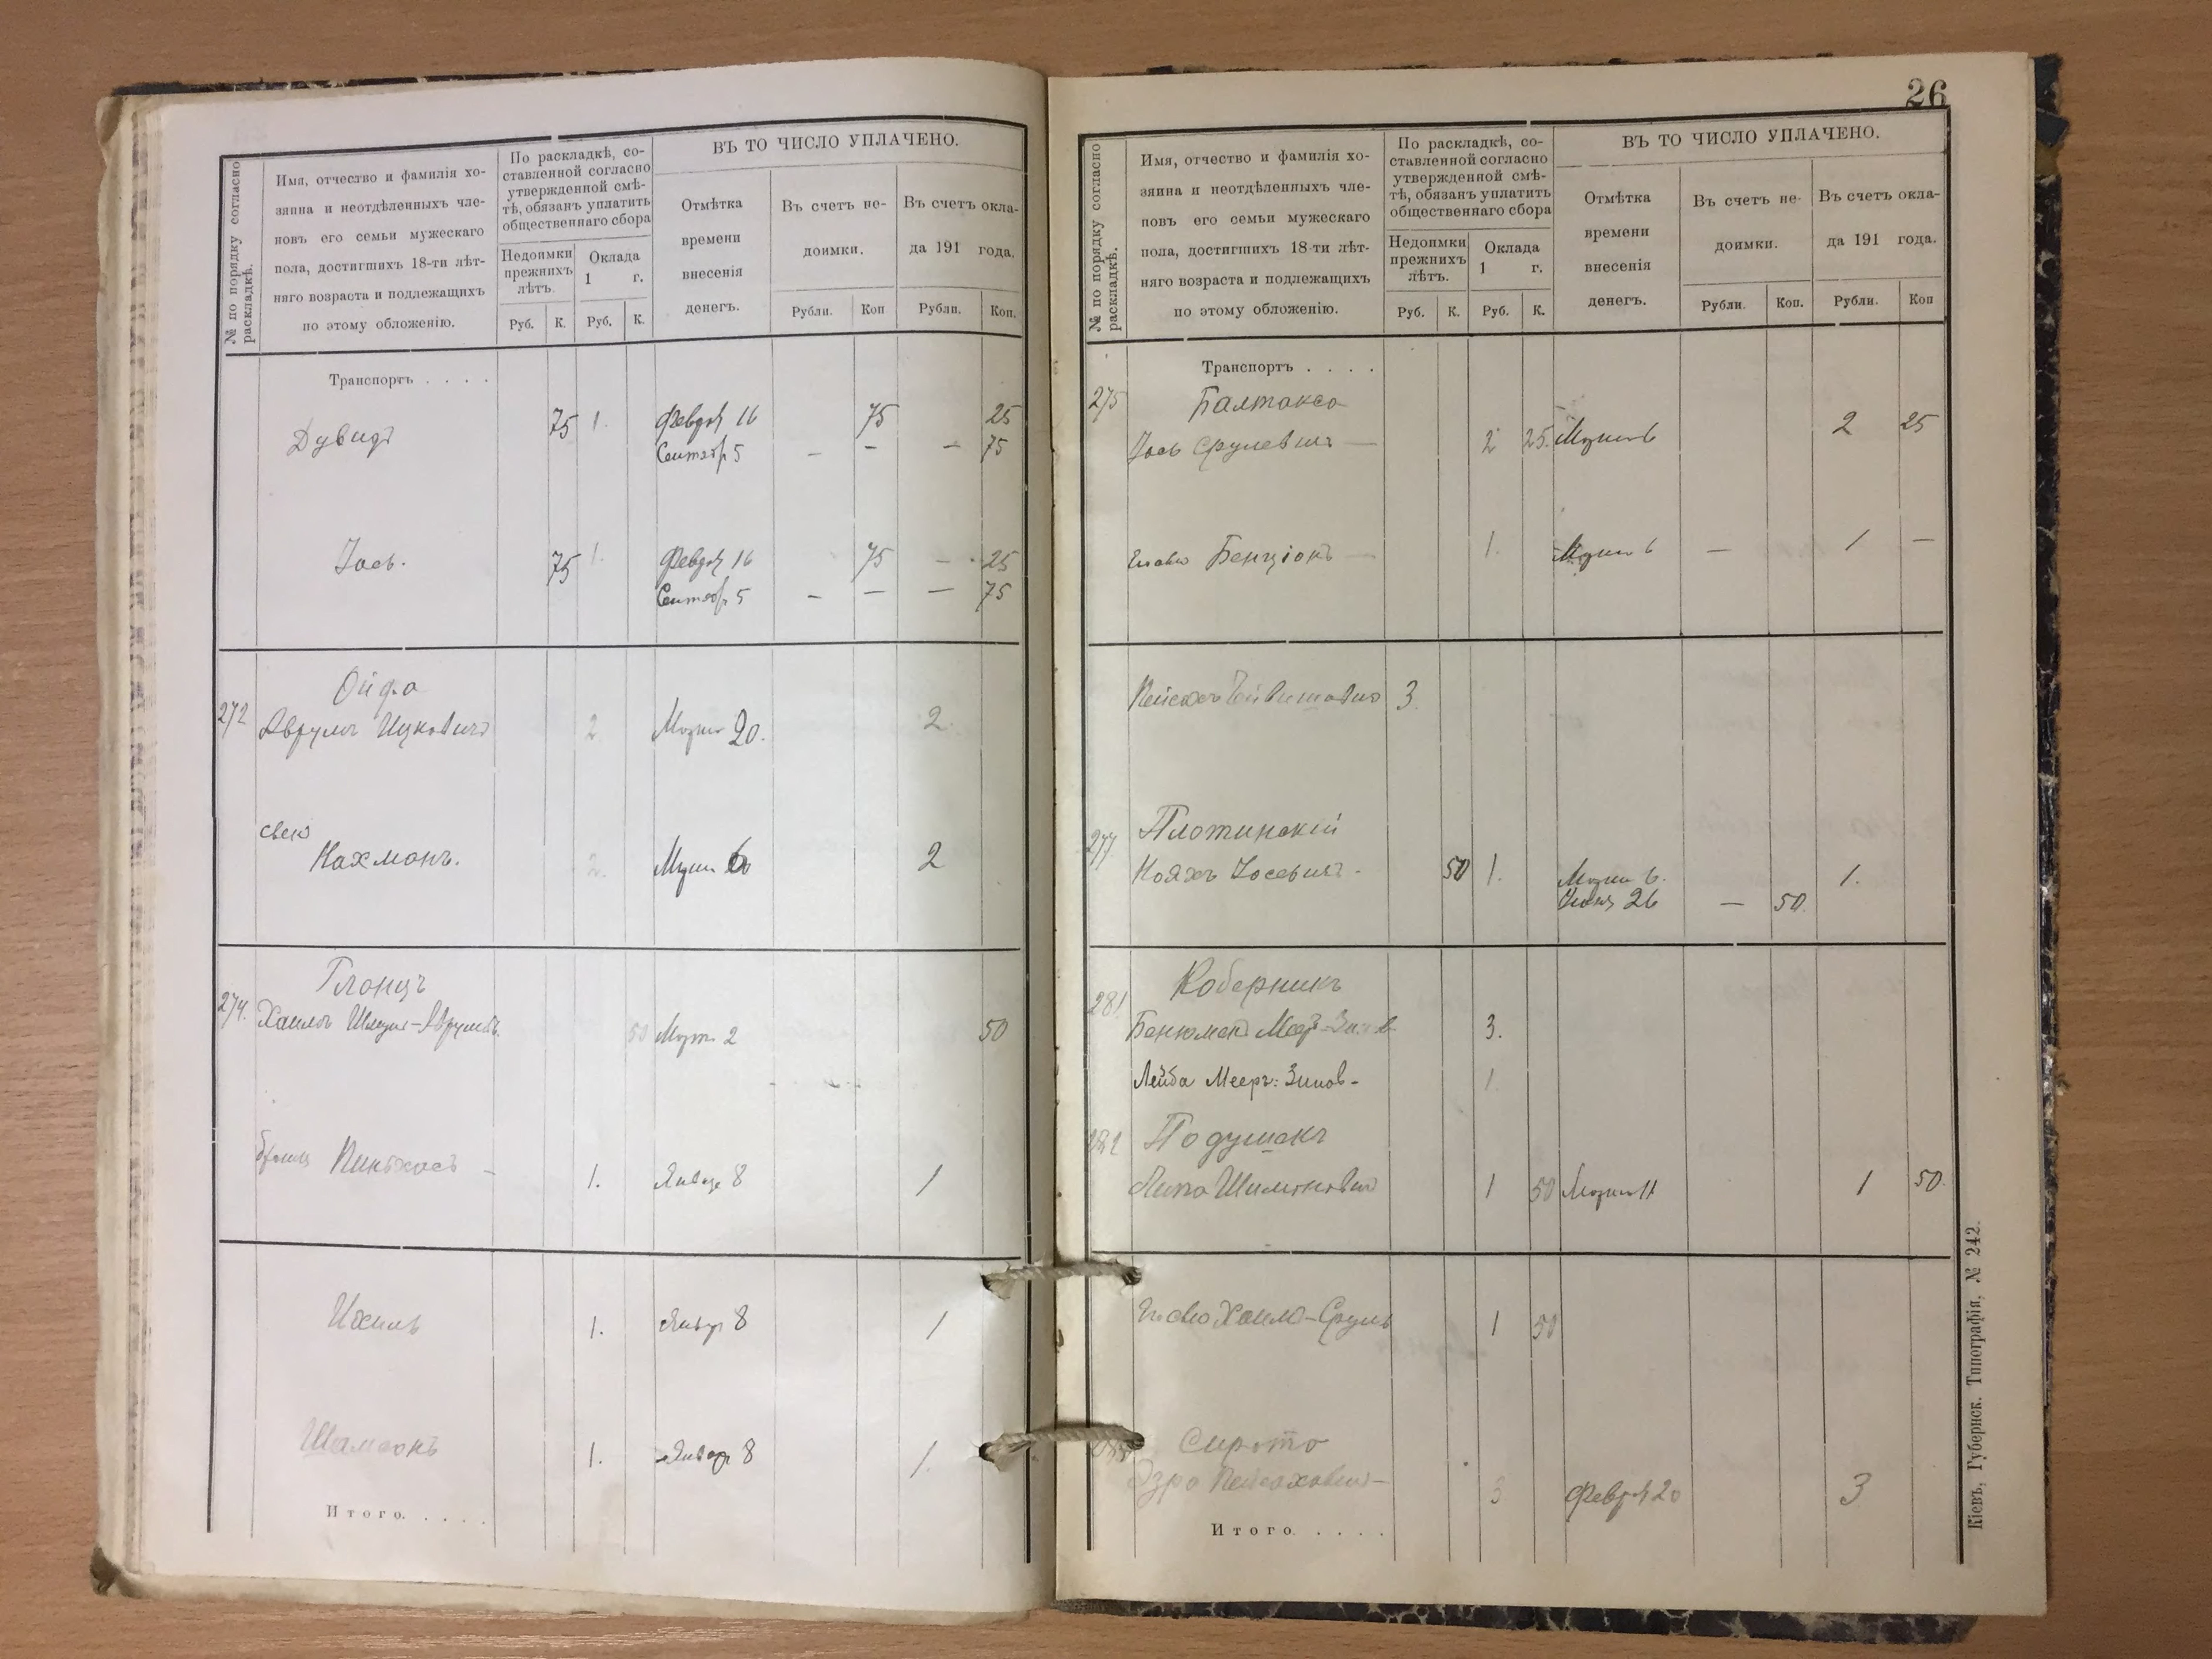 № по порядку согласно раскладкѣ.
Имя, отчество и фамилія хо-
зяина и неотдѣленныхъ чле-
новъ его семьи мужескаго
пола, достигшихъ 18-ти лѣт-
няго возраста и подлежащихъ
по этому обложенію.
По раскладкѣ, со-
ставленной согласно
утвержденной смѣ-
тѣ, обязанъ уплатить
общественнаго сбора
Недоимки
прежнихъ
лѣтъ.
Оклада
1 г.
Руб. К. Руб. К.
ВЪ ТО ЧИСЛО УПЛАЧЕНО.
Отмѣтка
времени
внесенія
денегъ.
Въ счетъ не-
доимки.
Въ счетъ окла-
да 191 года.
Рубли. Коп Рубли. Коп.
Транспортъ . . . .
Дувидъ 75 1. Февр 16 75 25
Сентяб 5 – – – 75
Іось. 75 1. Февр 16 75 – 25
Сентяб 5 – – – 75
Ойфа
272 Аврумъ Ицковичъ 2 Марта 20. 2.
Нахманъ. 2. Марта 6 2
Гланцъ
274. Хаимъ 50 Март 2 50
Пинхасъ – 1. Январ 8 1
Ихиль 1. Январ 8 1
Шамсонъ 1. Январ 8 1.
Итого. . . . .
26
№ по порядку согласно раскладкѣ.
Имя, отчество и фамилія хо-
зяина и неотдѣленныхъ чле-
новъ его семьи мужескаго
пола, достигшихъ 18-ти лѣт-
няго возраста и подлежащихъ
по этому обложенію.
По раскладкѣ, со-
ставленной согласно
утвержденной смѣ-
тѣ, обязанъ уплатить
общественнаго сбора
Недоимки
прежнихъ
лѣтъ.
Оклада
1 г.
Руб. К. Руб. К.
ВЪ ТО ЧИСЛО УПЛАЧЕНО.
Отмѣтка
времени
внесенія
денегъ.
Въ счетъ не-
доимки.
Въ счетъ окла-
да 191 года.
Рубли. Коп. Рубли. Коп
Транспортъ . . . .
275 Балтакса
Іось Срулевичъ 2 25. Марта 6 2 25
Бенціонъ 1. Марта 6 – 1 –
Пейсахъ 3.
277 Плотинскій
Іосевичъ. 50 1. Марта 6. 1.
26 – 50.
Коберникъ
281 3.
Лейба Мееръ: Зинов- 1.
282 Подушакъ
Липа Шимоновичъ 1 50 Марта 11 1 50
Хаимъ-Сруль 1 50
Сирота
Азра Пейсаховичъ – 3 Февр 20 3
Итого . . . .
Кіевъ, Губернск. Типографія, № 242.